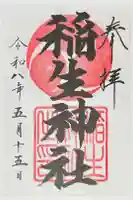 奉拝
稲生神社
令和八年五月十五日